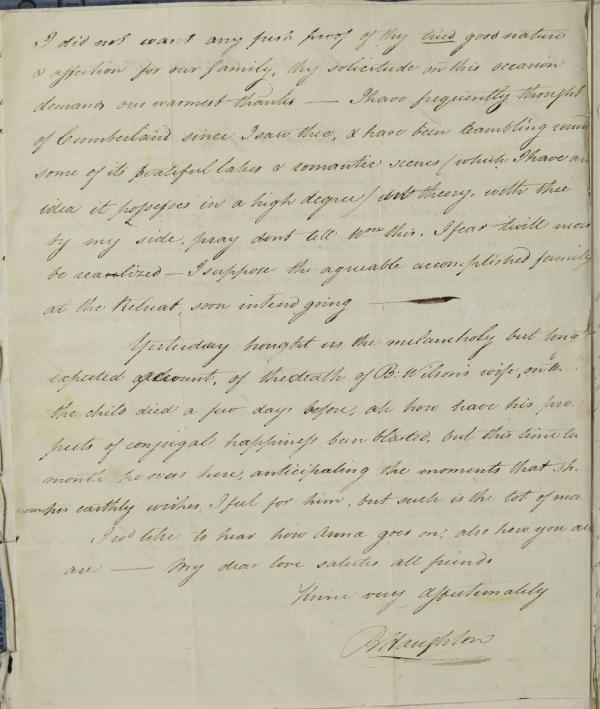 I did not want any fresh proof of thy tried good nature
& affection for our family, thy solicitude on this occasion
demands our warmest thanks — I have frequently thought
of Cumberland since I saw thee, & have been rambling round
some of its beatiful lakes & romantic scenes (which I have an
idea it possesses in a high degree) theory. with thee
by my side, pray dont tell Wm this. I fear twill never
be realized — I suppose the agreable accomplished family
at the Retreat, soon intend going —
Yesterday brought us the melancholy but long
expected account, of the death of B: Wilson's wife,
the child died a few days before, ah how have his pro
pects of conjugal happiness been blasted, but this time
month he was here, anticipating the moments that sh.
her earthly wishes, I feel for him, but such is the lot of
I wd like to hear how Anna goes on; also how you all
are — My dear love salutes all friends
Thine very affectionately
B Haughton